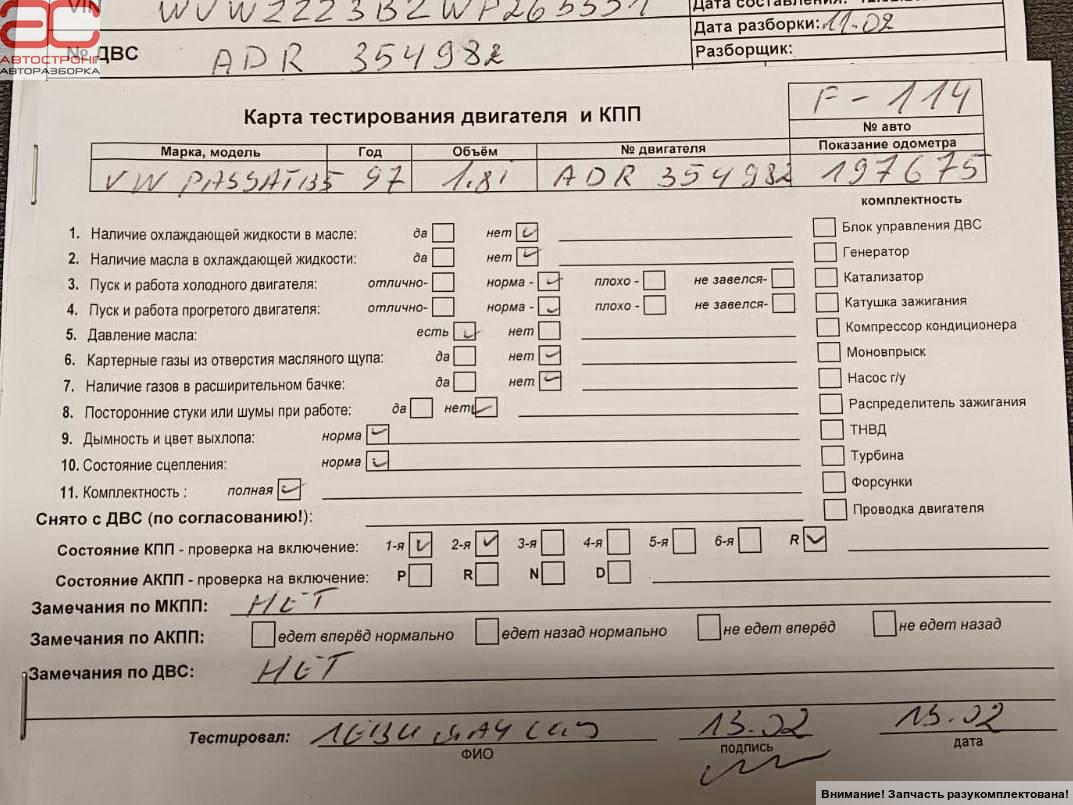 VIN WVWZZZ3BZWP265551
Дата составления:
Дата разборки: 11.02
АС
АВТОСТРОНГ
АВТОРАЗБОРКА
№ ДВС ADR 354982
Разборщик:
Карта тестирования двигателя и КПП
F-114
№ авто
Марка, модель Год Объём № двигателя Показание одометра
VW PASSAT B5 97 1.8i ADR 354982 197675
комплектность
1. Наличие охлаждающей жидкости в масле: да нет
Блок управления ДВС
2. Наличие масла в охлаждающей жидкости: да нет
Генератор
3. Пуск и работа холодного двигателя: отлично- норма - плохо - не завелся-
Катализатор
4. Пуск и работа прогретого двигателя: отлично- норма - плохо - не завелся-
Катушка зажигания
5. Давление масла: есть нет
Компрессор кондиционера
6. Картерные газы из отверстия масляного щупа: да нет
Моновпрыск
7. Наличие газов в расширительном бачке: да нет
Насос г/у
8. Посторонние стуки или шумы при работе: да нет
Распределитель зажигания
9. Дымность и цвет выхлопа: норма
ТНВД
10. Состояние сцепления: норма
Турбина
11. Комплектность : полная
Форсунки
Снято с ДВС (по согласованию!):
Проводка двигателя
Состояние КПП - проверка на включение: 1-я 2-я 3-я 4-я 5-я 6-я R
Состояние АКПП - проверка на включение: P R N D
Замечания по МКПП: НЕТ
Замечания по АКПП: едет вперёд нормально едет назад нормально не едет вперёд не едет назад
Замечания по ДВС: НЕТ
Тестировал: 13.02 13.02
ФИО подпись дата
Внимание! Запчасть разукомплектована!